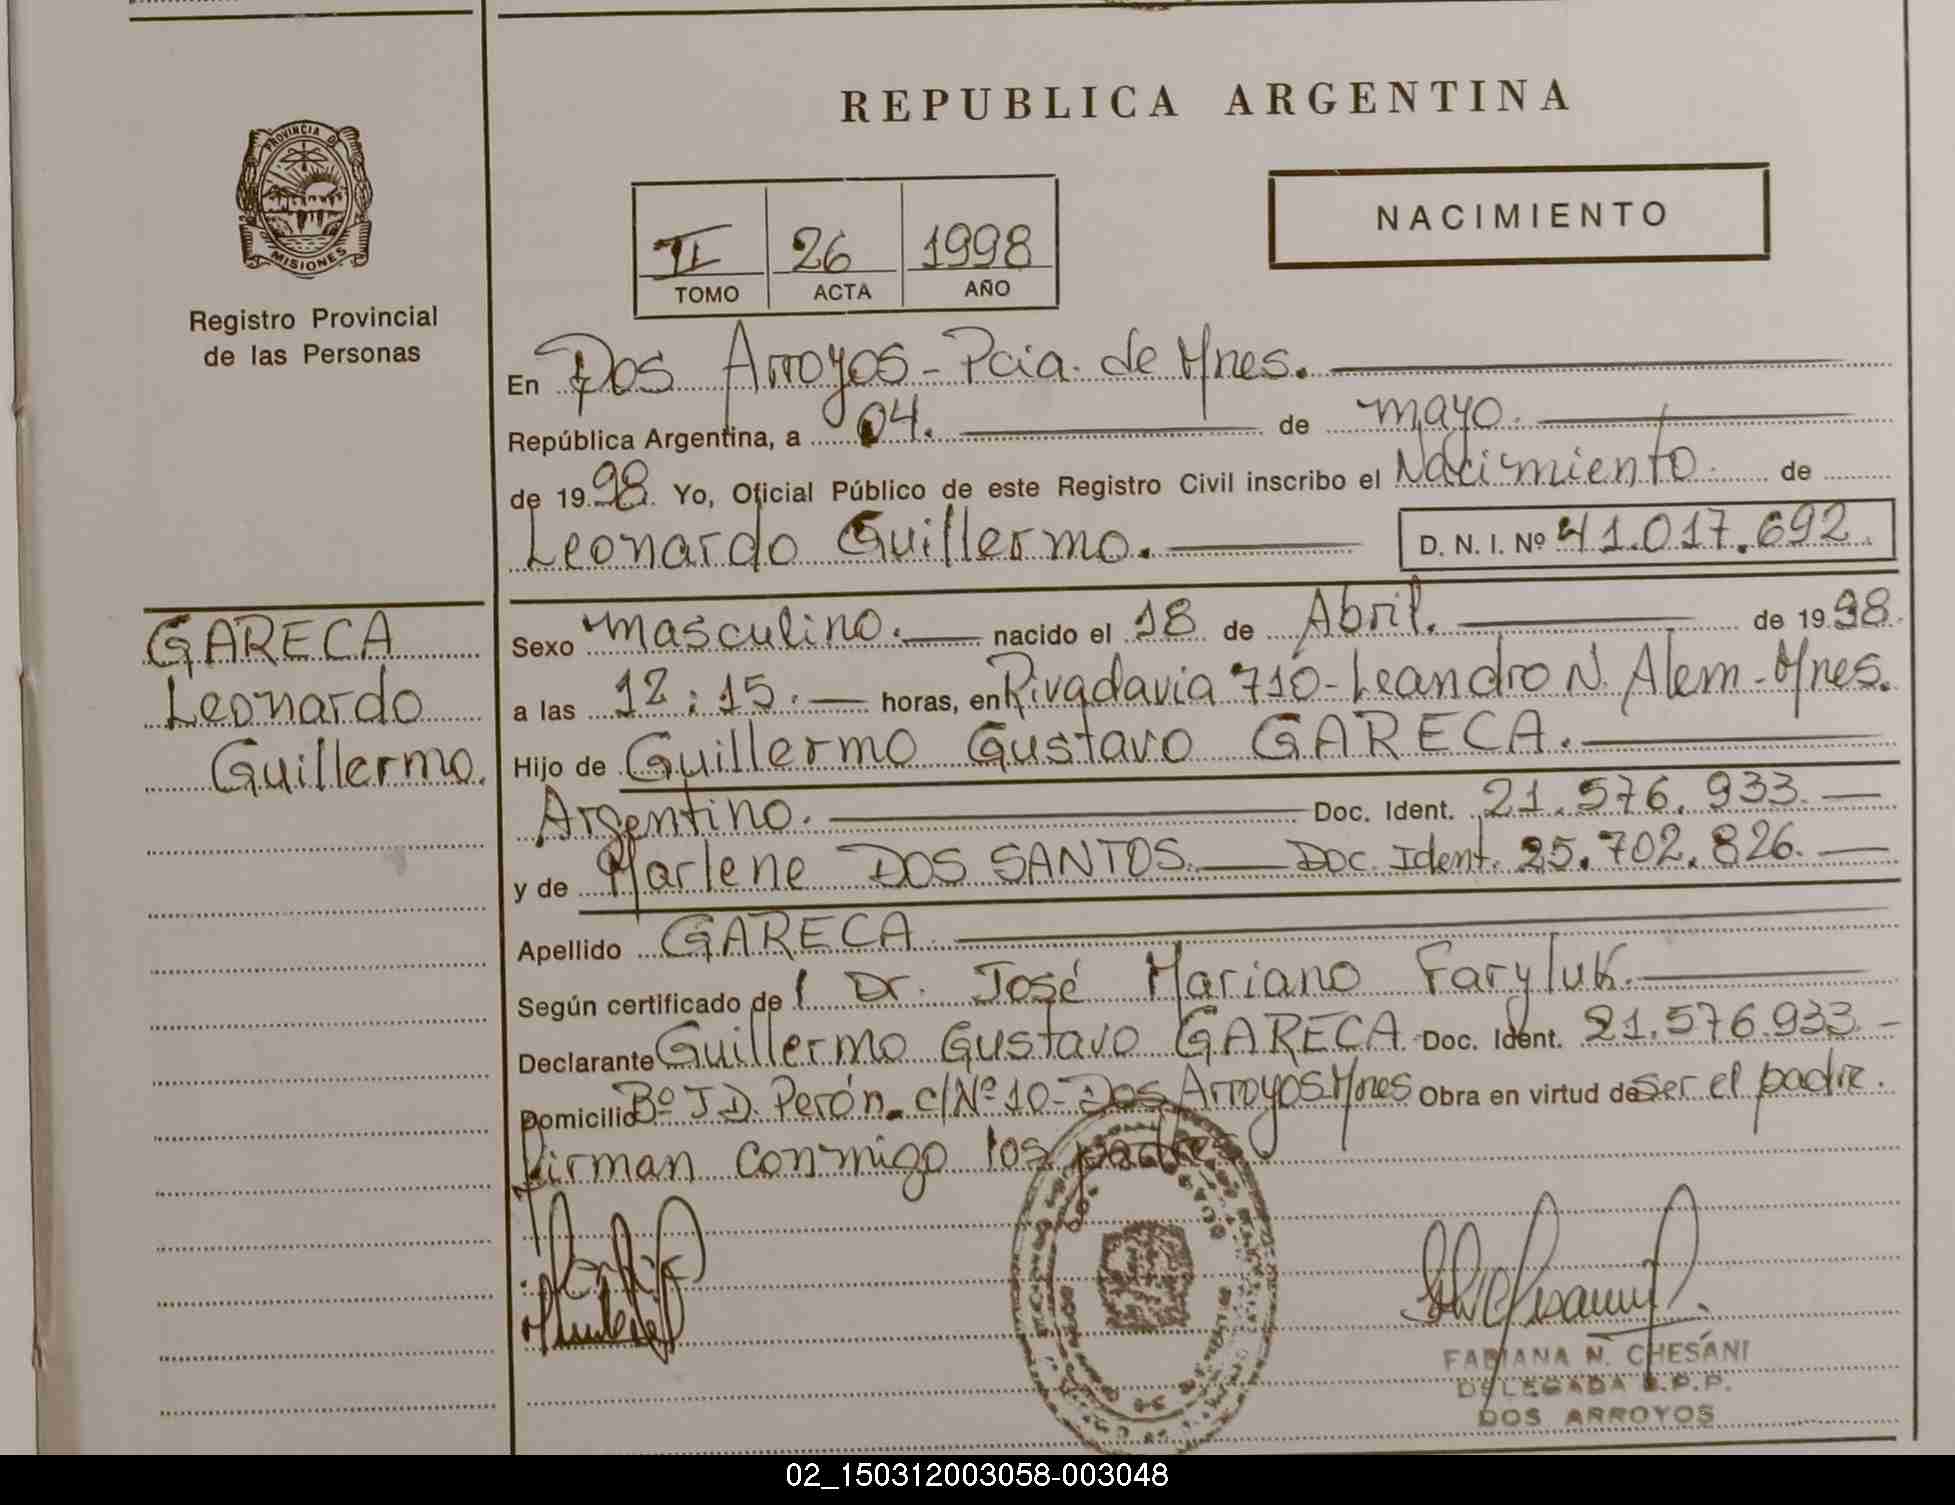 REPUBLICA ARGENTINA
PROVINCIA D
MISIONES
Registro Provincial
de las Personas
II 26 1998
TOMO ACTA AÑO
NACIMIENTO
En Dos Arroyos - Pcia. de Mnes.
República Argentina, a 04. de mayo.
de 1998. Yo, Oficial Público de este Registro Civil inscribo el Nacimiento. de
Leonardo Guillermo. D. N. I. Nº 41.017.692.
GARECA
Leonardo
Guillermo.
Sexo masculino. nacido el 18 de Abril. de 1998.
a las 12:15. horas, en Rivadavia 710 - Leandro N. Alem - Mnes.
Hijo de Guillermo Gustavo GARECA.
Argentino. Doc. Ident. 21.576.933.
y de Marlene DOS SANTOS. Doc. Ident. 25.702.826.
Apellido GARECA
Según certificado del Dr. José Mariano Faryluk.
Declarante Guillermo Gustavo GARECA. Doc. Ident. 21.576.933.
Domicilio Bº J.D. Perón. c/Nº 10 - Dos Arroyos Mnes Obra en virtud de ser el padre.
Firman conmigo los padres
FABIANA N. CHESANI
DELEGADA R.P.P.
DOS ARROYOS
02_150312003058-003048